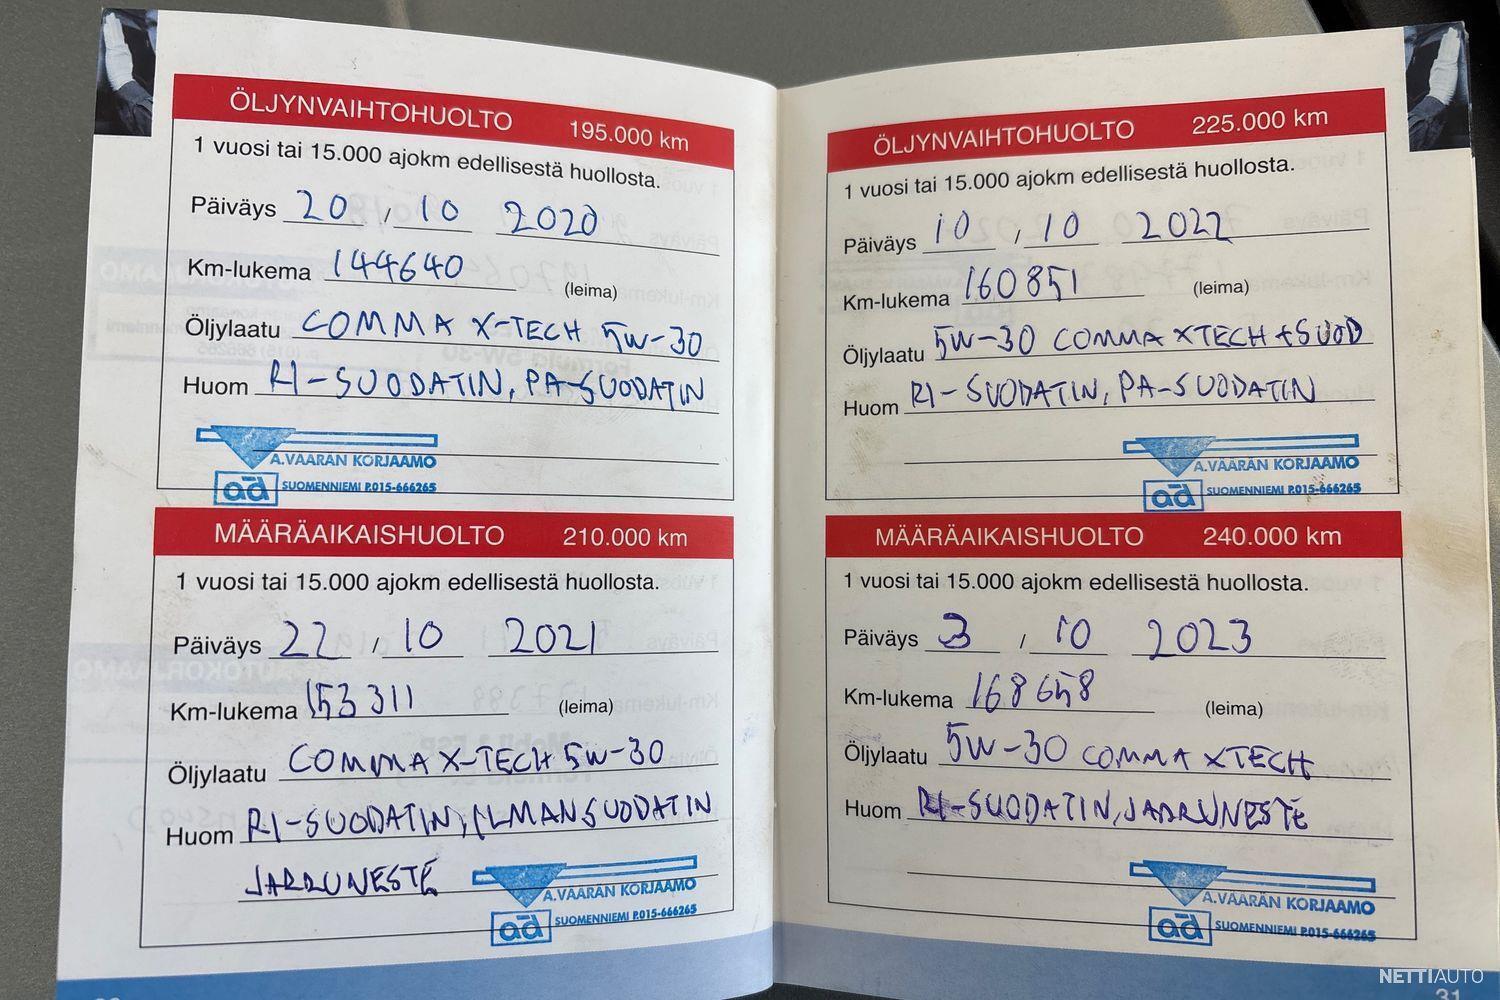 ÖLJYNVAIHTOHUOLTO 195.000 km
1 vuosi tai 15.000 ajokm edellisestä huollosta.
Päiväys 20 / 10 2020
Km-lukema 144640 (leima)
Öljylaatu COMMA X-TECH 5W-30
Huom RI-SUODATIN, PA-SUODATIN
A.VAARAN KORJAAMO
ad SUOMENNIEMI P.015-666265
MÄÄRÄAIKAISHUOLTO 210.000 km
1 vuosi tai 15.000 ajokm edellisestä huollosta.
Päiväys 22 / 10 2021
Km-lukema 153311 (leima)
Öljylaatu COMMA X-TECH 5W-30
Huom RI-SUODATIN, ILMANSUODATIN
JARRUNESTE
A.VAARAN KORJAAMO
ad SUOMENNIEMI P.015-666265
ÖLJYNVAIHTOHUOLTO 225.000 km
1 vuosi tai 15.000 ajokm edellisestä huollosta.
Päiväys 10 / 10 2022
Km-lukema 160851 (leima)
Öljylaatu 5W-30 COMMA XTECH + SUOD
Huom RI-SUODATIN, PA-SUODATIN
A.VAARAN KORJAAMO
ad SUOMENNIEMI P.015-666265
MÄÄRÄAIKAISHUOLTO 240.000 km
1 vuosi tai 15.000 ajokm edellisestä huollosta.
Päiväys 3 / 10 2023
Km-lukema 168658 (leima)
Öljylaatu 5W-30 COMMA XTECH
Huom RI-SUODATIN, JARRUNESTE
A.VAARAN KORJAAMO
ad SUOMENNIEMI P.015-666265
31
NETTIAUTO